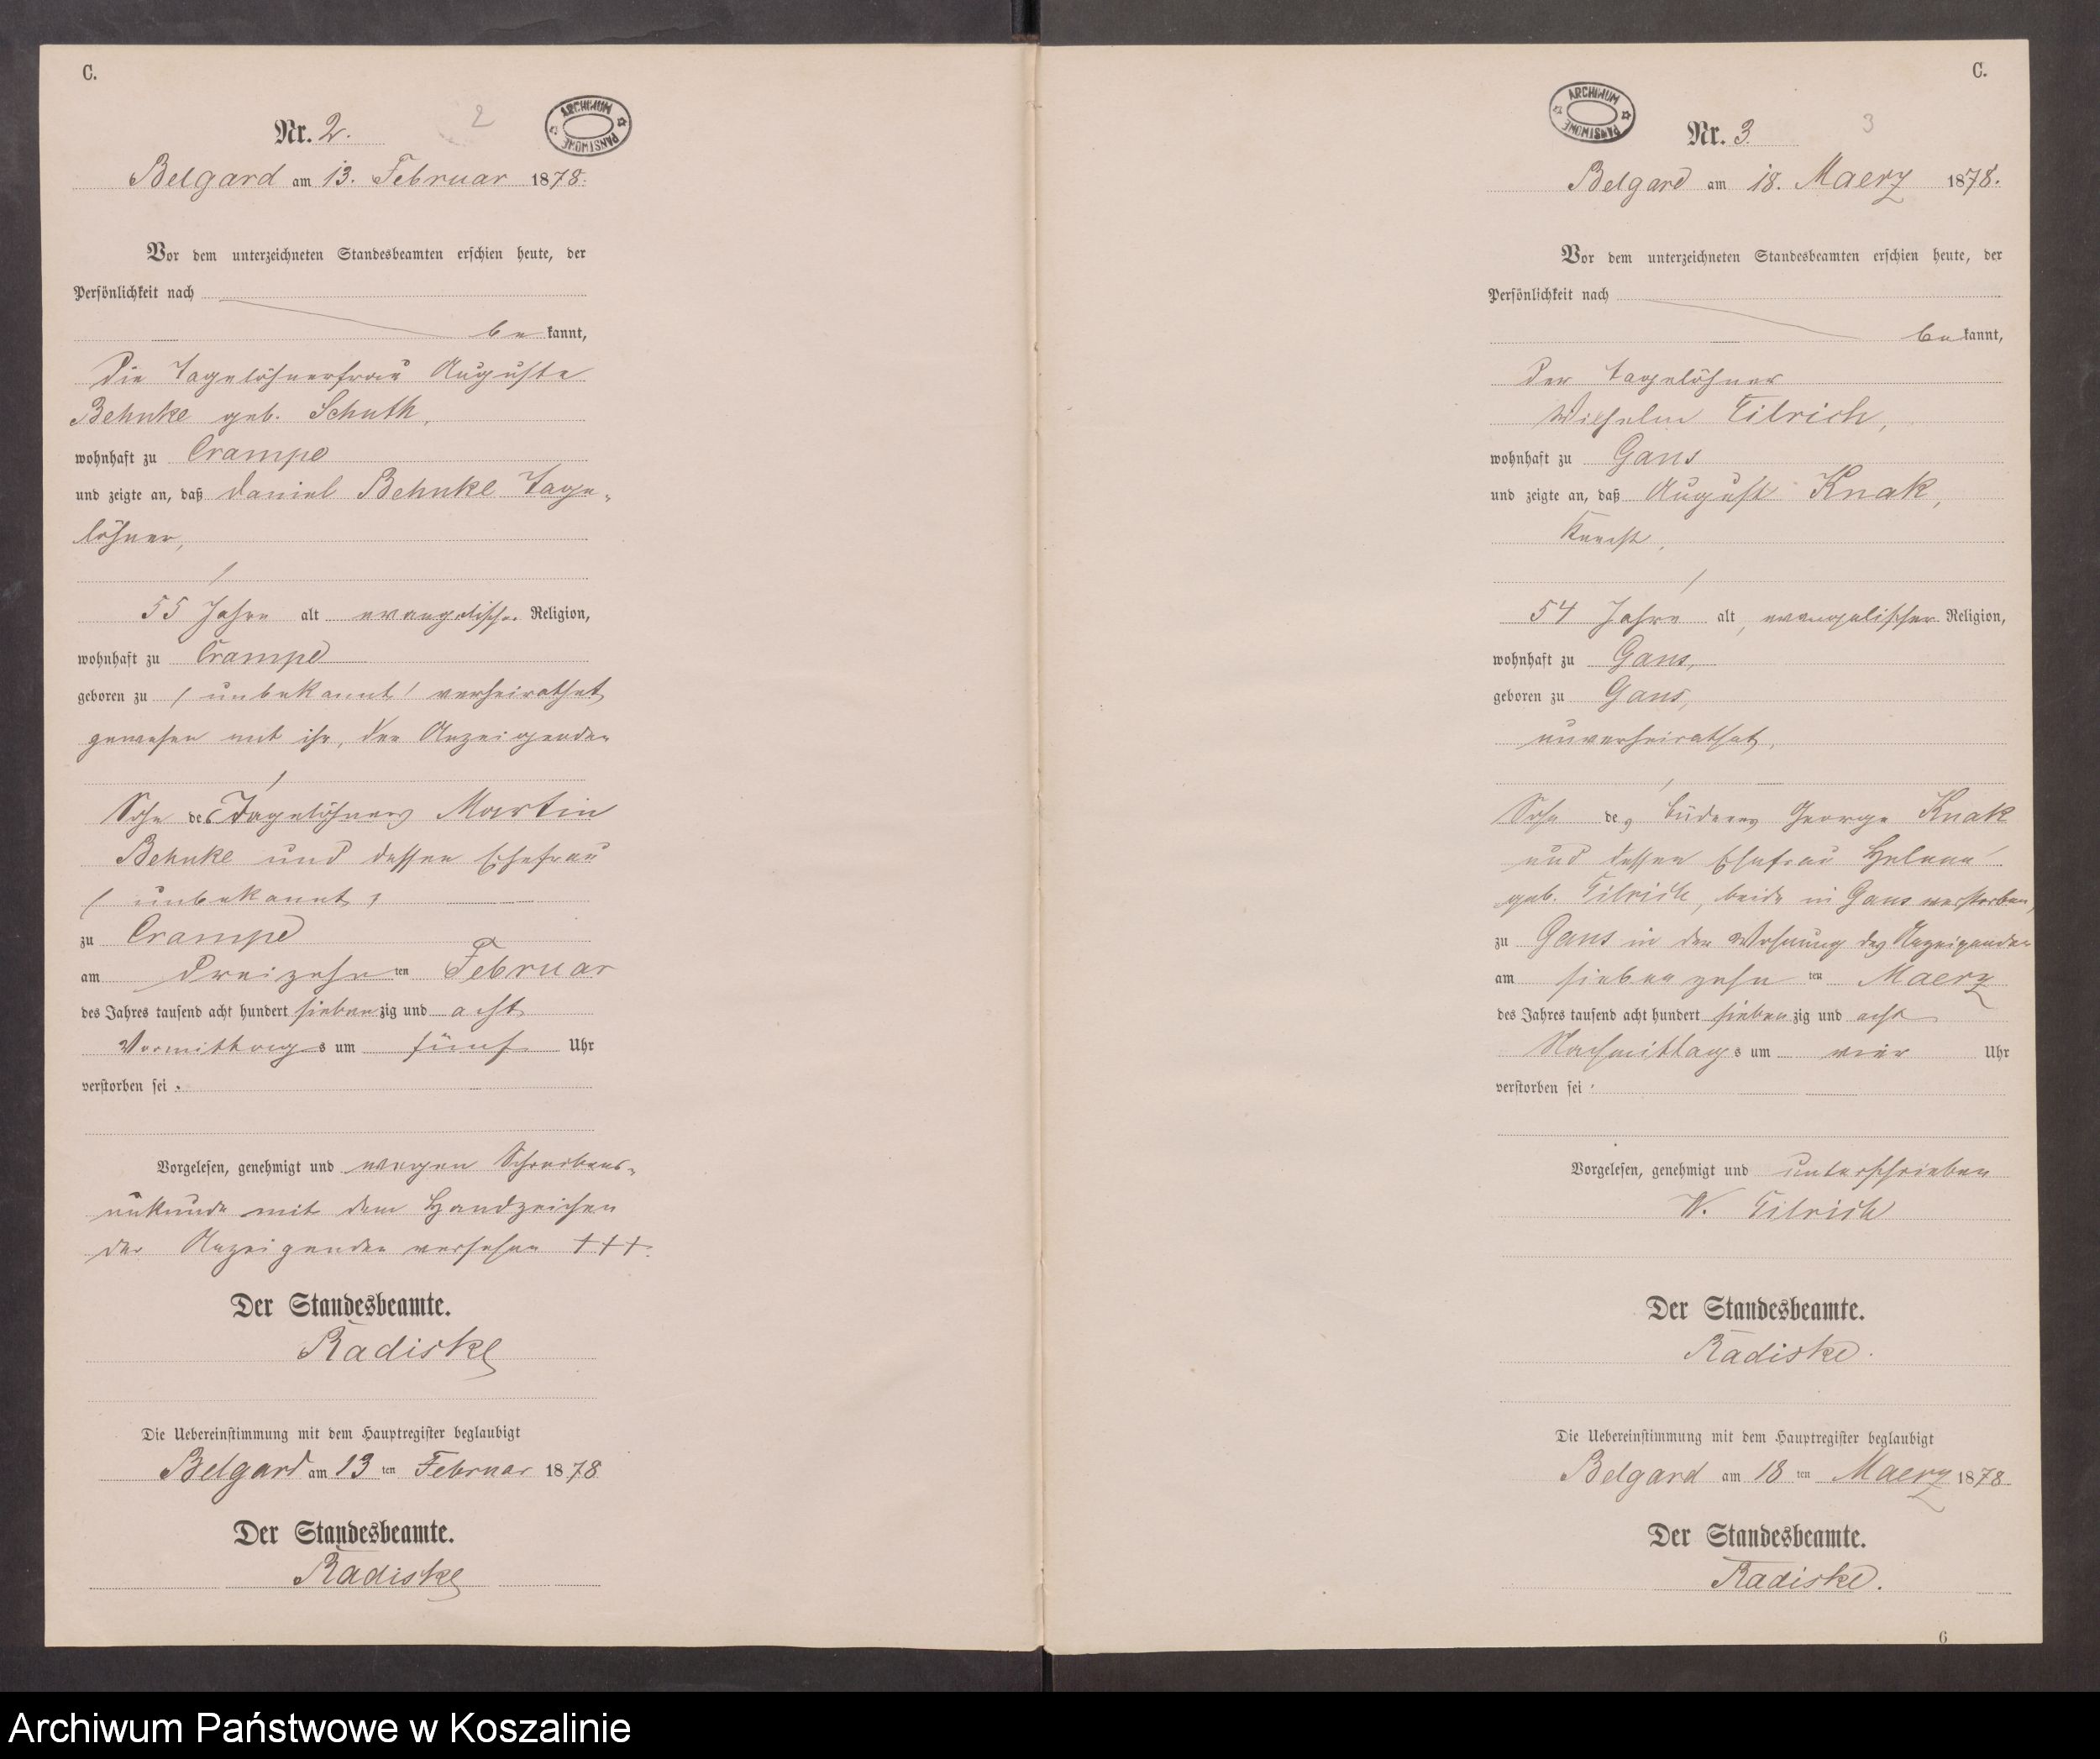 C.
Nr. 2.
2
ARCHIWUM PAŃSTWOWE
Belgard am 13. Februar 1878.
Vor dem unterzeichneten Standesbeamten erschien heute, der
Persönlichkeit nach
be kannt,
die Tagelöhnerfrau Auguste
Behnke geb. Schuth,
wohnhaft zu Crampe
und zeigte an, daß Daniel Behnke Tage-
löhner,
55 Jahre alt evangelischer Religion,
wohnhaft zu Crampe
geboren zu (unbekannt) verheirathet
gewesen mit ihr, der Anzeigenden
Sohn des Tagelöhners Martin
Behnke und dessen Ehefrau
(unbekannt)
zu Crampe
am dreizehn ten Februar
des Jahres tausend acht hundert sieben zig und acht
Vormittag s um fünf Uhr
verstorben sei.
Vorgelesen, genehmigt und wegen Schreibens-
unkunde mit dem Handzeichen
der Anzeigenden versehen +++.
Der Standesbeamte.
Radiske
Die Uebereinstimmung mit dem Hauptregister beglaubigt
Belgard am 13 ten Februar 1878
Der Standesbeamte.
Radiske
C.
ARCHIWUM PAŃSTWOWE
Nr. 3
3
Belgard am 18. Maerz 1878.
Vor dem unterzeichneten Standesbeamten erschien heute, der
Persönlichkeit nach
be kannt,
der Tagelöhner
Wilhelm Tilrich,
wohnhaft zu Gans
und zeigte an, daß August Knak,
Knecht,
54 Jahre alt, evangelischer Religion,
wohnhaft zu Gans,
geboren zu Gans,
unverheirathet,
Sohn des Büdners George Knak
und dessen Ehefrau Helene
geb. Tilrich, beide in Gans verstorben,
zu Gans in der Wohnung des Anzeigenden
am siebenzehn ten Maerz
des Jahres tausend acht hundert sieben zig und acht
Nachmittag s um vier Uhr
verstorben sei.
Vorgelesen, genehmigt und unterschrieben
W. Tilrich
Der Standesbeamte.
Radiske.
Die Uebereinstimmung mit dem Hauptregister beglaubigt
Belgard am 18 ten Maerz 1878
Der Standesbeamte.
Radiske.
6
Archiwum Państwowe w Koszalinie